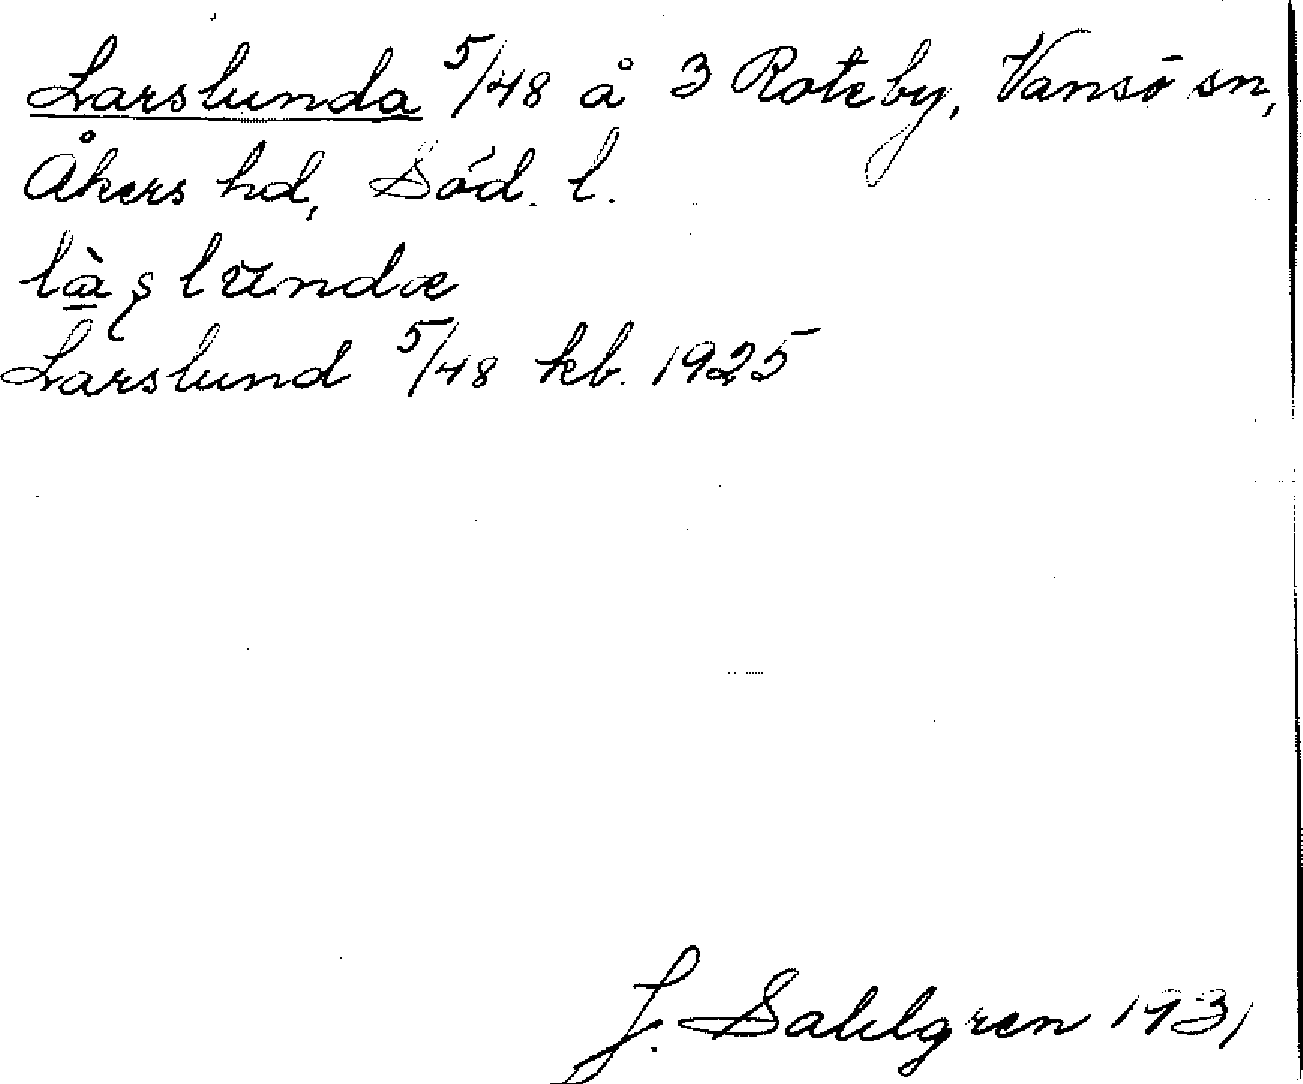 Larslunda 5/48 å 3 Roteby, Vansö sn,
Åkers hd, Söd. l.
Larslund 5/48 kb. 1925
J. Sahlgren 1931